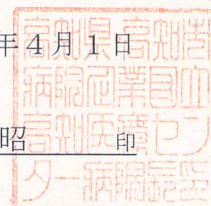 年４月１日
昭 印
高知県高知市
病院企業団立
高知医療セン
ター病院長印